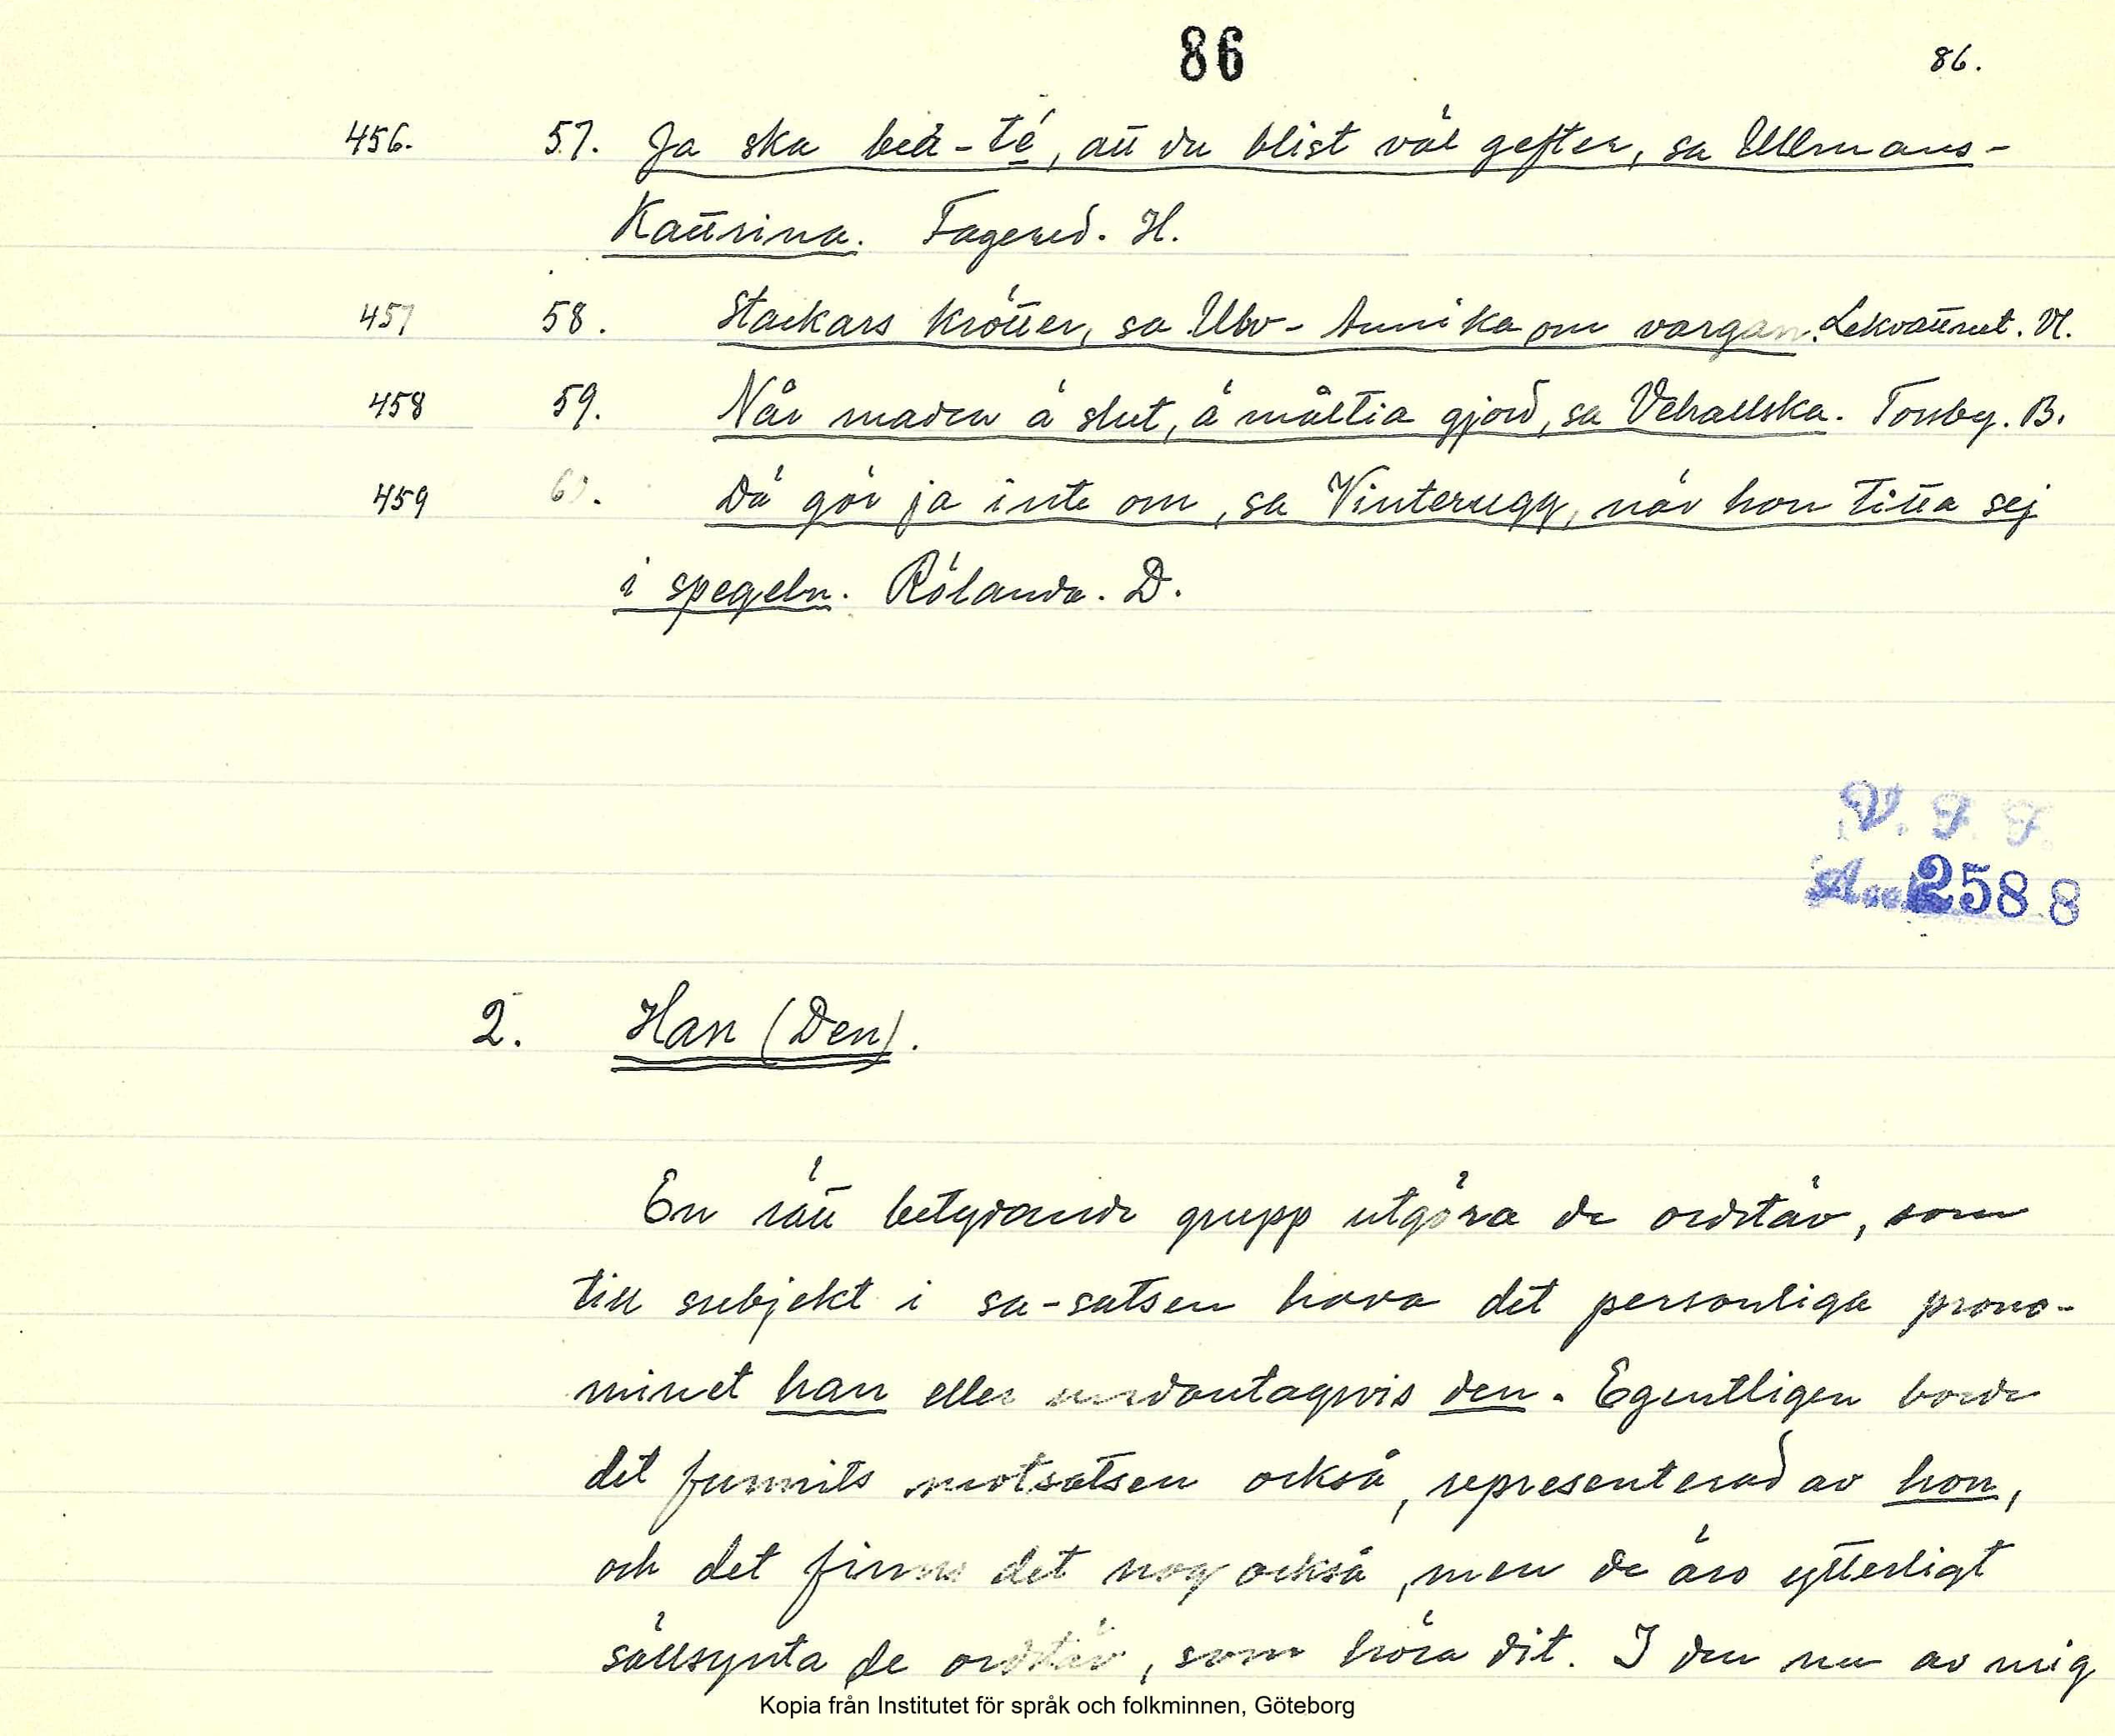 86
86.
456. 57. Ja ska beä-té, att du blist väl gefter, sa Ullmans-
Kattrina. Fagered. H.
457 58. Stackars krötter, sa Ulv-Annika om vargan. Lekvattnet. Vl.
458 59. Når maden ä slut, ä måltia gjord, sa Vehallska. Torsby. B.
459 60. Dä gör ja inte om, sa Vinterugg, när hon titta sej
i spegeln. Rölanda. D.
V. F. F.
Acc. 2588
2. Han (Den).
En rätt betydande grupp utgöra de ordstäv, som
till subjekt i sa-satsen hava det personliga prono-
minet han eller undantagsvis den. Egentligen borde
det funnits motsatsen också, representerad av hon,
och det finns det nog också, men de äro ytterligt
sällsynta de ordstäv, som höra dit. I den nu av mig
Kopia från Institutet för språk och folkminnen, Göteborg